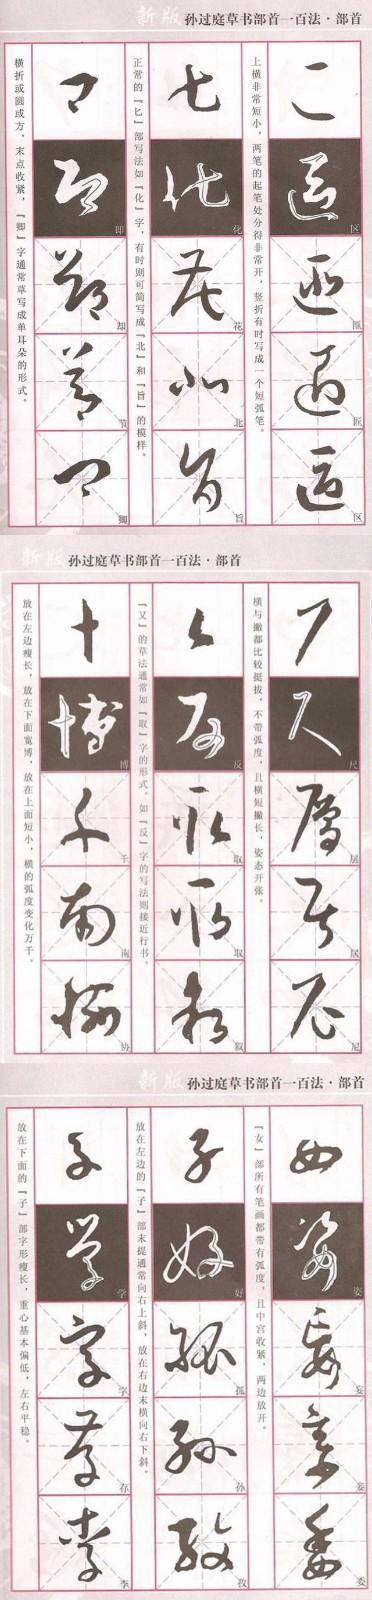 新版 孙过庭草书部首一百法·部首
上横非常短小，两笔的起笔处分得非常开，竖折有时写成一个短弧笔。
区
匝
匠
区
正常的『匕』部写法如『化』字，有时则可简写成『北』和『旨』的模样。
化
花
北
旨
横折或圆或方，末点收紧，『卿』字通常草写成单耳朵的形式。
即
却
节
卿
新版 孙过庭草书部首一百法·部首
横与撇都比较挺拔，不带弧度，且横短撇长，姿态开张。
尺
层
居
尼
『又』的草法通常如『取』字的形式，如『反』字的写法则接近行书。
反
取
取
叙
放在左边瘦长，放在下面宽博，放在上面短小，横的弧度变化万千。
博
千
南
协
新版 孙过庭草书部首一百法·部首
『女』部所有笔画都带有弧度，且中宫收紧，两边放开。
姿
妄
妾
委
放在左边的『子』部末提通常向右上斜，放在右边末横向右下斜。
好
孤
孙
孜
放在下面的『子』部字形瘦长，重心基本偏低，左右平稳。
学
字
存
李